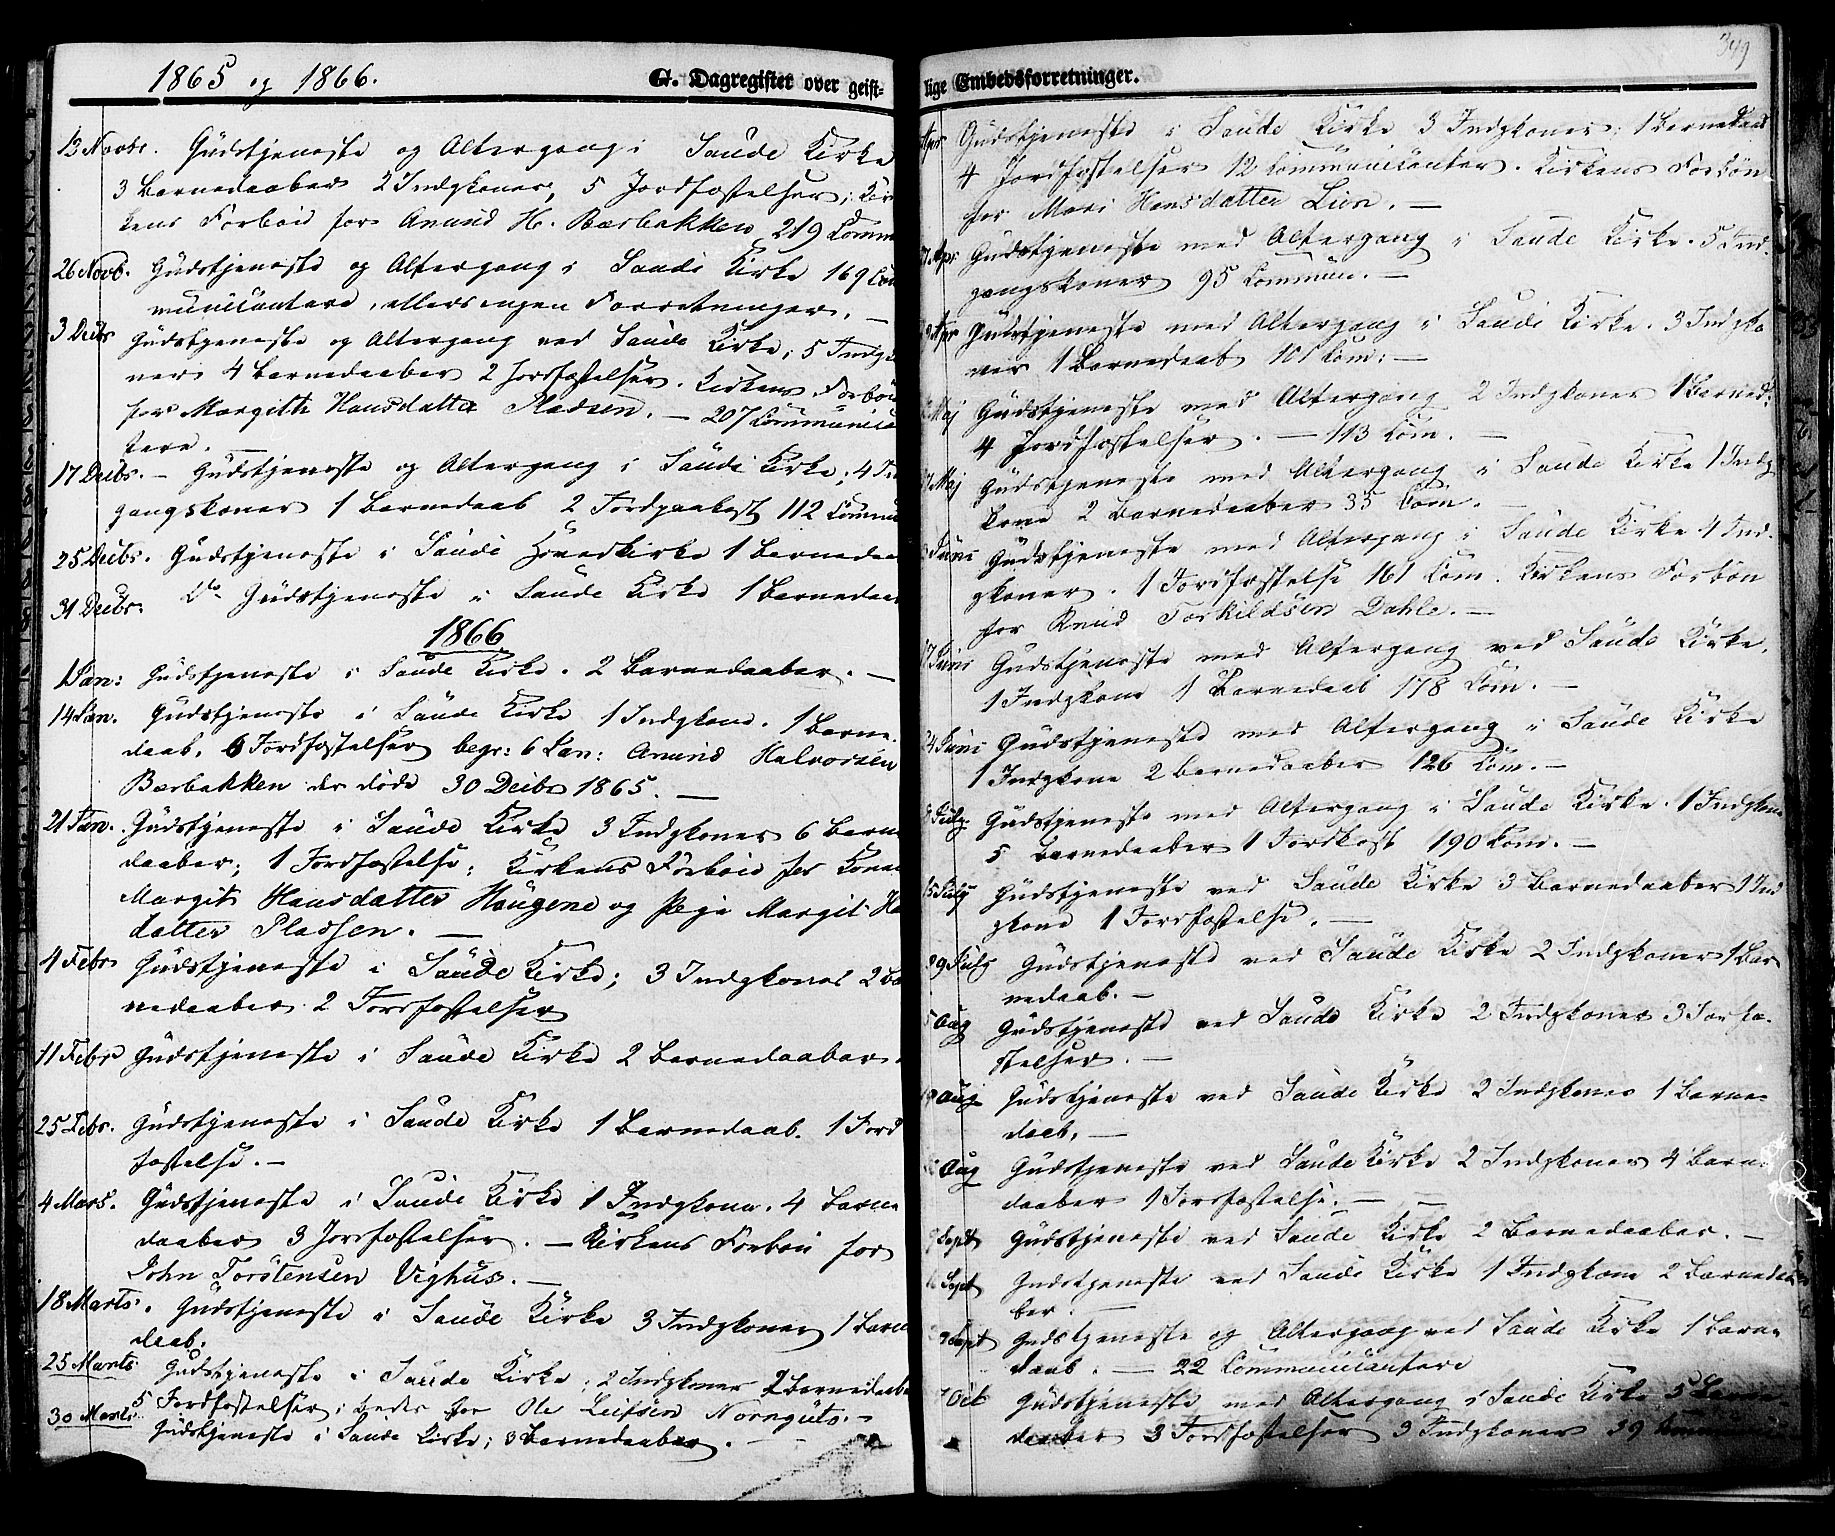 1865 og 1866.
G. Dagregister over geist-
13 Novbr. Gudstjeneste og Altergang i Saude Kirke
3 Barnedaaber 2 Indgkoner, 5 Jordfæstelser; Kir
kens Forbøn for Anund H. Bærbakken 219 Comm
26 Novb. Gudstjeneste og Altergang i Saude Kirke 169 Com
municantere, ellers ingen Forretninger. —
3 Decbr Gudstjeneste og Altergang ved Saude Kirke; 5 Indgk
ner 4 Barnedaaber 2 Jordfæstelser. Kirkens Forbøn
for Margith Hansdatter Pladsen. — 207 Communica
tere. —
17 Decbr. — Gudstjeneste og Altergang i Saude Kirke; 4 In
gangskoner 1 Barnedaab 2 Jordpaakast 112 Commu
25 Decbr. Gudstjeneste i Saude Hovedkirke 1 Barnedaab
31 Decbr. Do Gudstjeneste i Saude Kirke 1 Barnedaab
1866
1 Jan: Gudstjeneste i Saude Kirke. 2 Barnedaaber. —
14 Jan. Gudstjeneste i Saude Kirke 1 Indgkone. 1 Barne
daab. 6 Jordfæstelser begr: 6 Jan: Anund Halvorsen
Bærbakken der døde 30 Decbr 1865. —
21 Jan. Gudstjeneste i Saude Kirke 3 Indgkoner 6 Barne
daaber; 1 Jordfæstelse; Kirkens Forbøn for Konen
Margit Hansdatter Haugene og Pige Margit Ha
datter Pladsen. —
4 Febr Gudstjeneste i Saude Kirke; 3 Indgkoner 2 Ba
nedaaber 2 Jordfæstelser
11 Febr Gudstjeneste i Saude Kirke 2 Barnedaaber.
25 Febr. Gudstjeneste i Saude Kirke 1 Barnedaab. 1 Jord
fæstelse. —
4 Mars. Gudstjeneste i Saude Kirke 1 Indgkone. 4 Barne
daaber 3 Jordfæstelser. — Kirkens Forbøn for
John Torstensen Vighus. —
18 Marts. Gudstjeneste i Saude Kirke 3 Indgkoner 1 Barne
daab.
25 Marts. Gudstjeneste i Saude Kirke; 2 Indgkoner 2 Barnedaabe
5 Jordfæstelser; for Ole Leifsen Nornguts. —
30 Marts Gudstjeneste i Saude Kirke; 3 Barnedaaber. —
349
lige Embedsforretninger.
Apr Gudstjeneste i Saude Kirke 3 Indgkoner; 1 Barnedaab
4 Jordfæstelser 12 Communicanter. Kirkens Forbøn
for Mari Hansdatter Lien. —
Apr Gudstjeneste med Altergang i Saude Kirke. 5 Ind-
gangskoner 95 Commun. —
Apr Gudstjeneste med Altergang i Saude Kirke. 3 Indgko
ner 1 Barnedaab 101 Com: —
Maj Gudstjeneste med Altergang 2 Indgkoner 1 Barned:
4 Jordfæstelser. — 113 Com. —
Maj Gudstjeneste med Altergang i Saude Kirke 1 Indg
kone 2 Barnedaaber 35 Com. —
Juni Gudstjeneste med Altergang i Saude Kirke 4 Ind-
gkoner. 1 Jordfæstelse 161 Com. Kirkens Forbøn
for Knud Torkildsen Dahle. —
17 Juni Gudstjeneste med Altergang ved Saude Kirke,
1 Indgkone 1 Barnedaab 178 Com. —
24 Juni Gudstjeneste med Altergang i Saude Kirke
1 Indgkone 2 Barnedaaber 126 Com. —
July Gudstjeneste med Altergang i Saude Kirke. 1 Indgkone
5 Barnedaaber 1 Jordkast 190 Com. —
15 July Gudstjeneste ved Saude Kirke 3 Barnedaaber 1 Ind
gkone 1 Jordfæstelse. —
29 July Gudstjeneste ved Saude Kirke 2 Indgkoner 1 Bar
nedaab. —
5 Aug Gudstjeneste ved Saude Kirke 2 Indgkoner 3 Jordfæ-
stelser. —
Aug Gudstjeneste ved Saude Kirke 2 Indgkoner 1 Barne-
daab. —
Aug Gudstjeneste ved Saude Kirke 2 Indgkoner 4 Barne
daaber 1 Jordfæstelse. — —
Sept Gudstjeneste ved Saude Kirke 2 Barnedaaber. —
Sept Gudstjeneste ved Saude Kirke 1 Indgkone 2 Barnedaa
ber. —
Sept Gudstjeneste og Altergang ved Saude Kirke 1 Barne
daab. — 22 Communicantere
7 Oct Gudstjeneste med Altergang i Saude Kirke 5 Barne
daaber 3 Jordfæstelser 3 Indgkoner 39